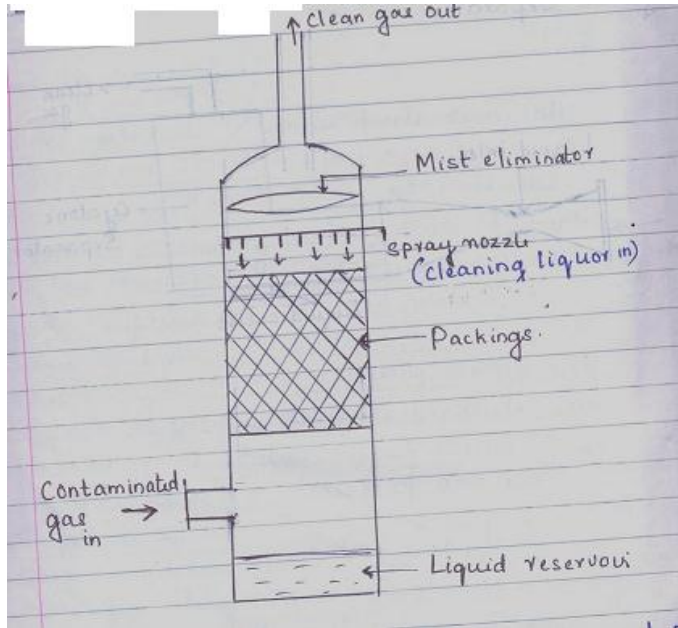 Clean gas out
Mist eliminator
spray nozzle
(cleaning liquor in)
Packings.
Contaminated
gas
in
Liquid reservoui